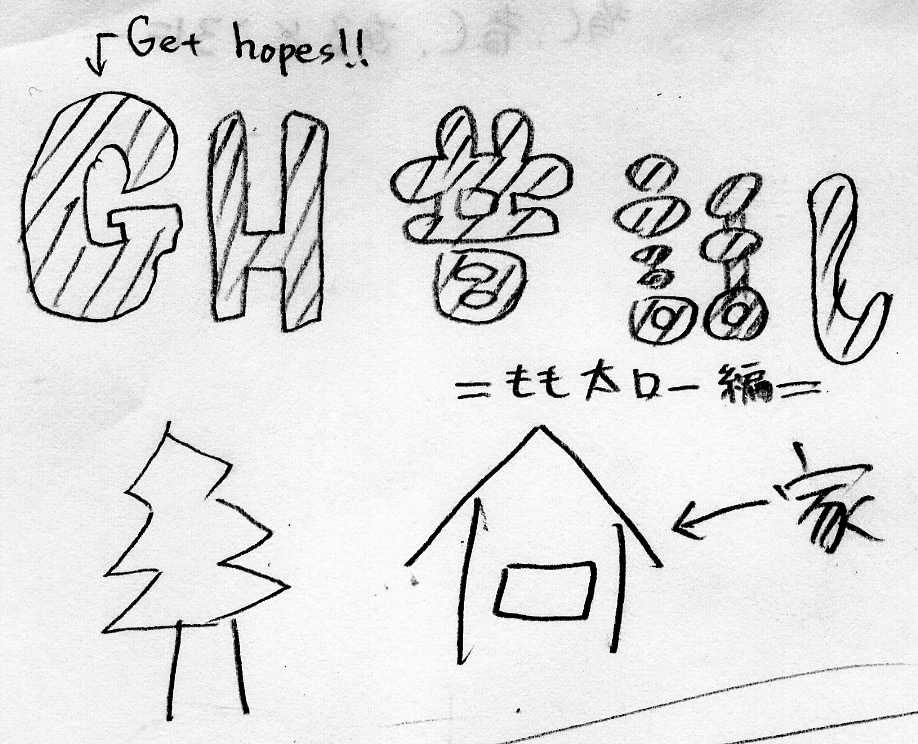 Get hopes!!
GH 昔話し
=もも太ロー編=
家